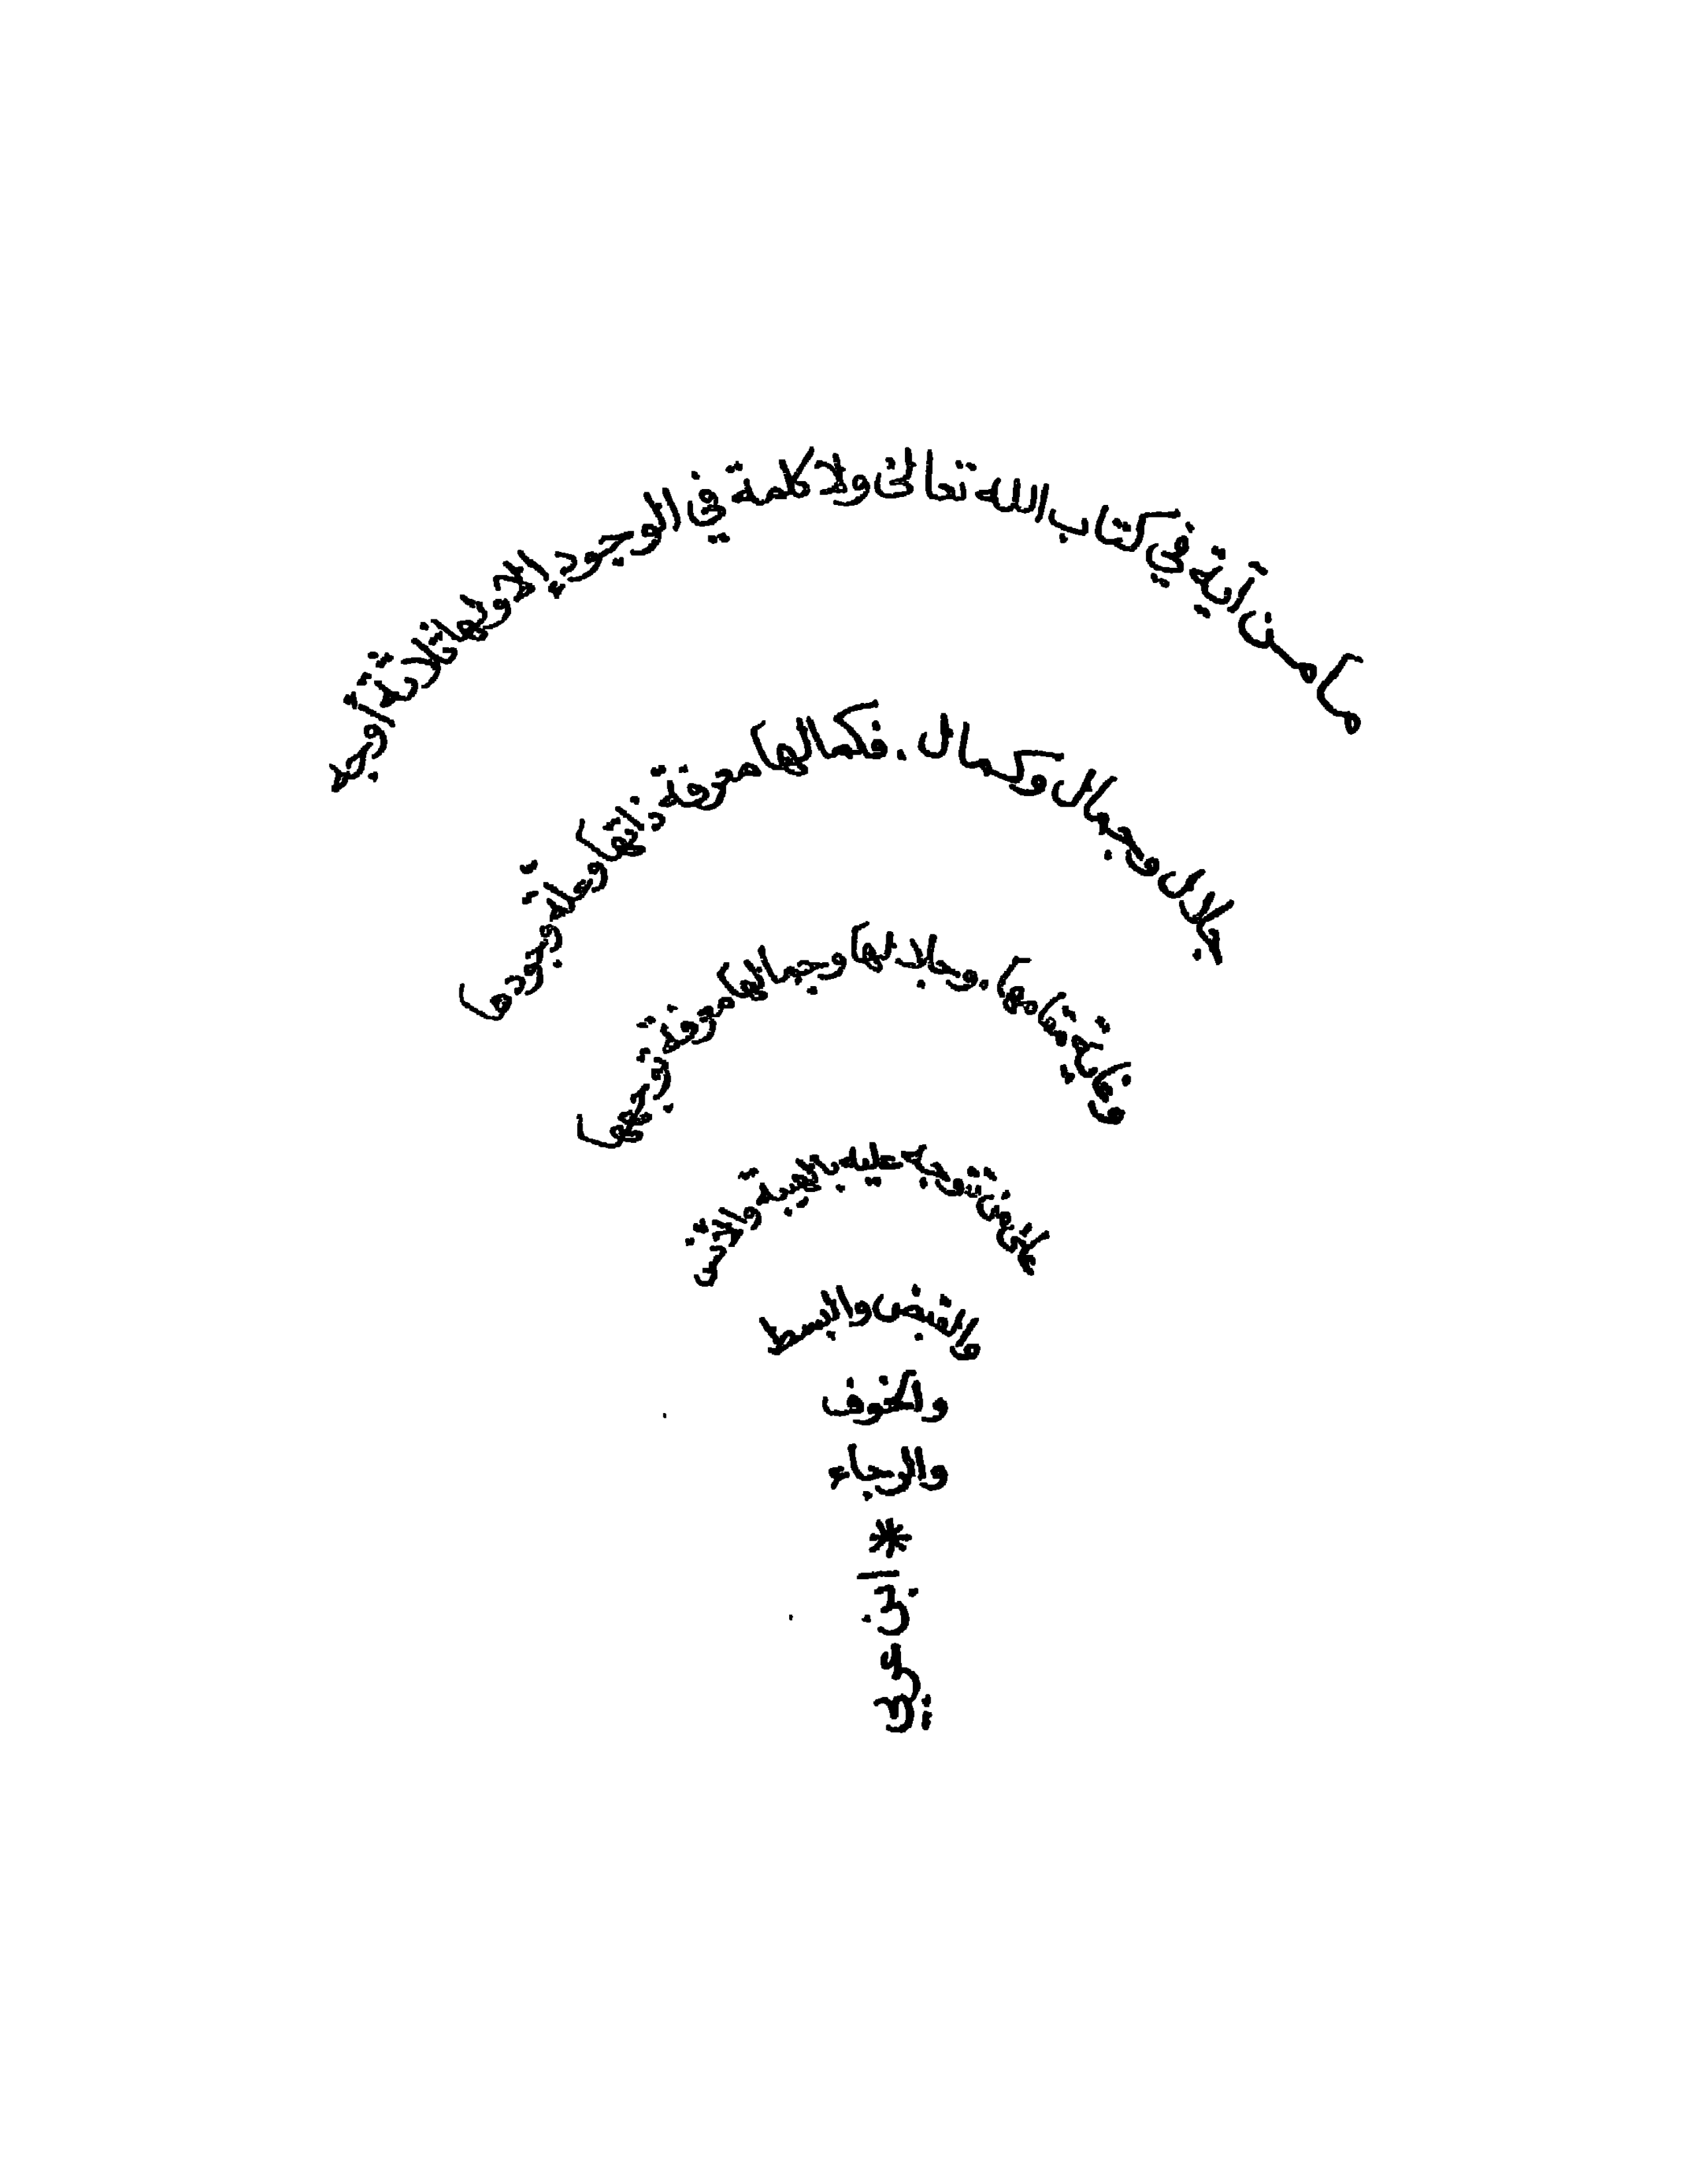 ما من آية في كتاب الله تعالى ولا كلمة في الوجود إلا ولها ثلاثة أوجه
جلال وجمال وكمال. فكمالها معرفة ذاتها وعلة وجودها
وغاية مقامها، وجلالها وجمالها معرفة توجهها
على من تتوجه عليه بالهيبة والأنس
والقبض والبسط
والخوف
والرجاء
*